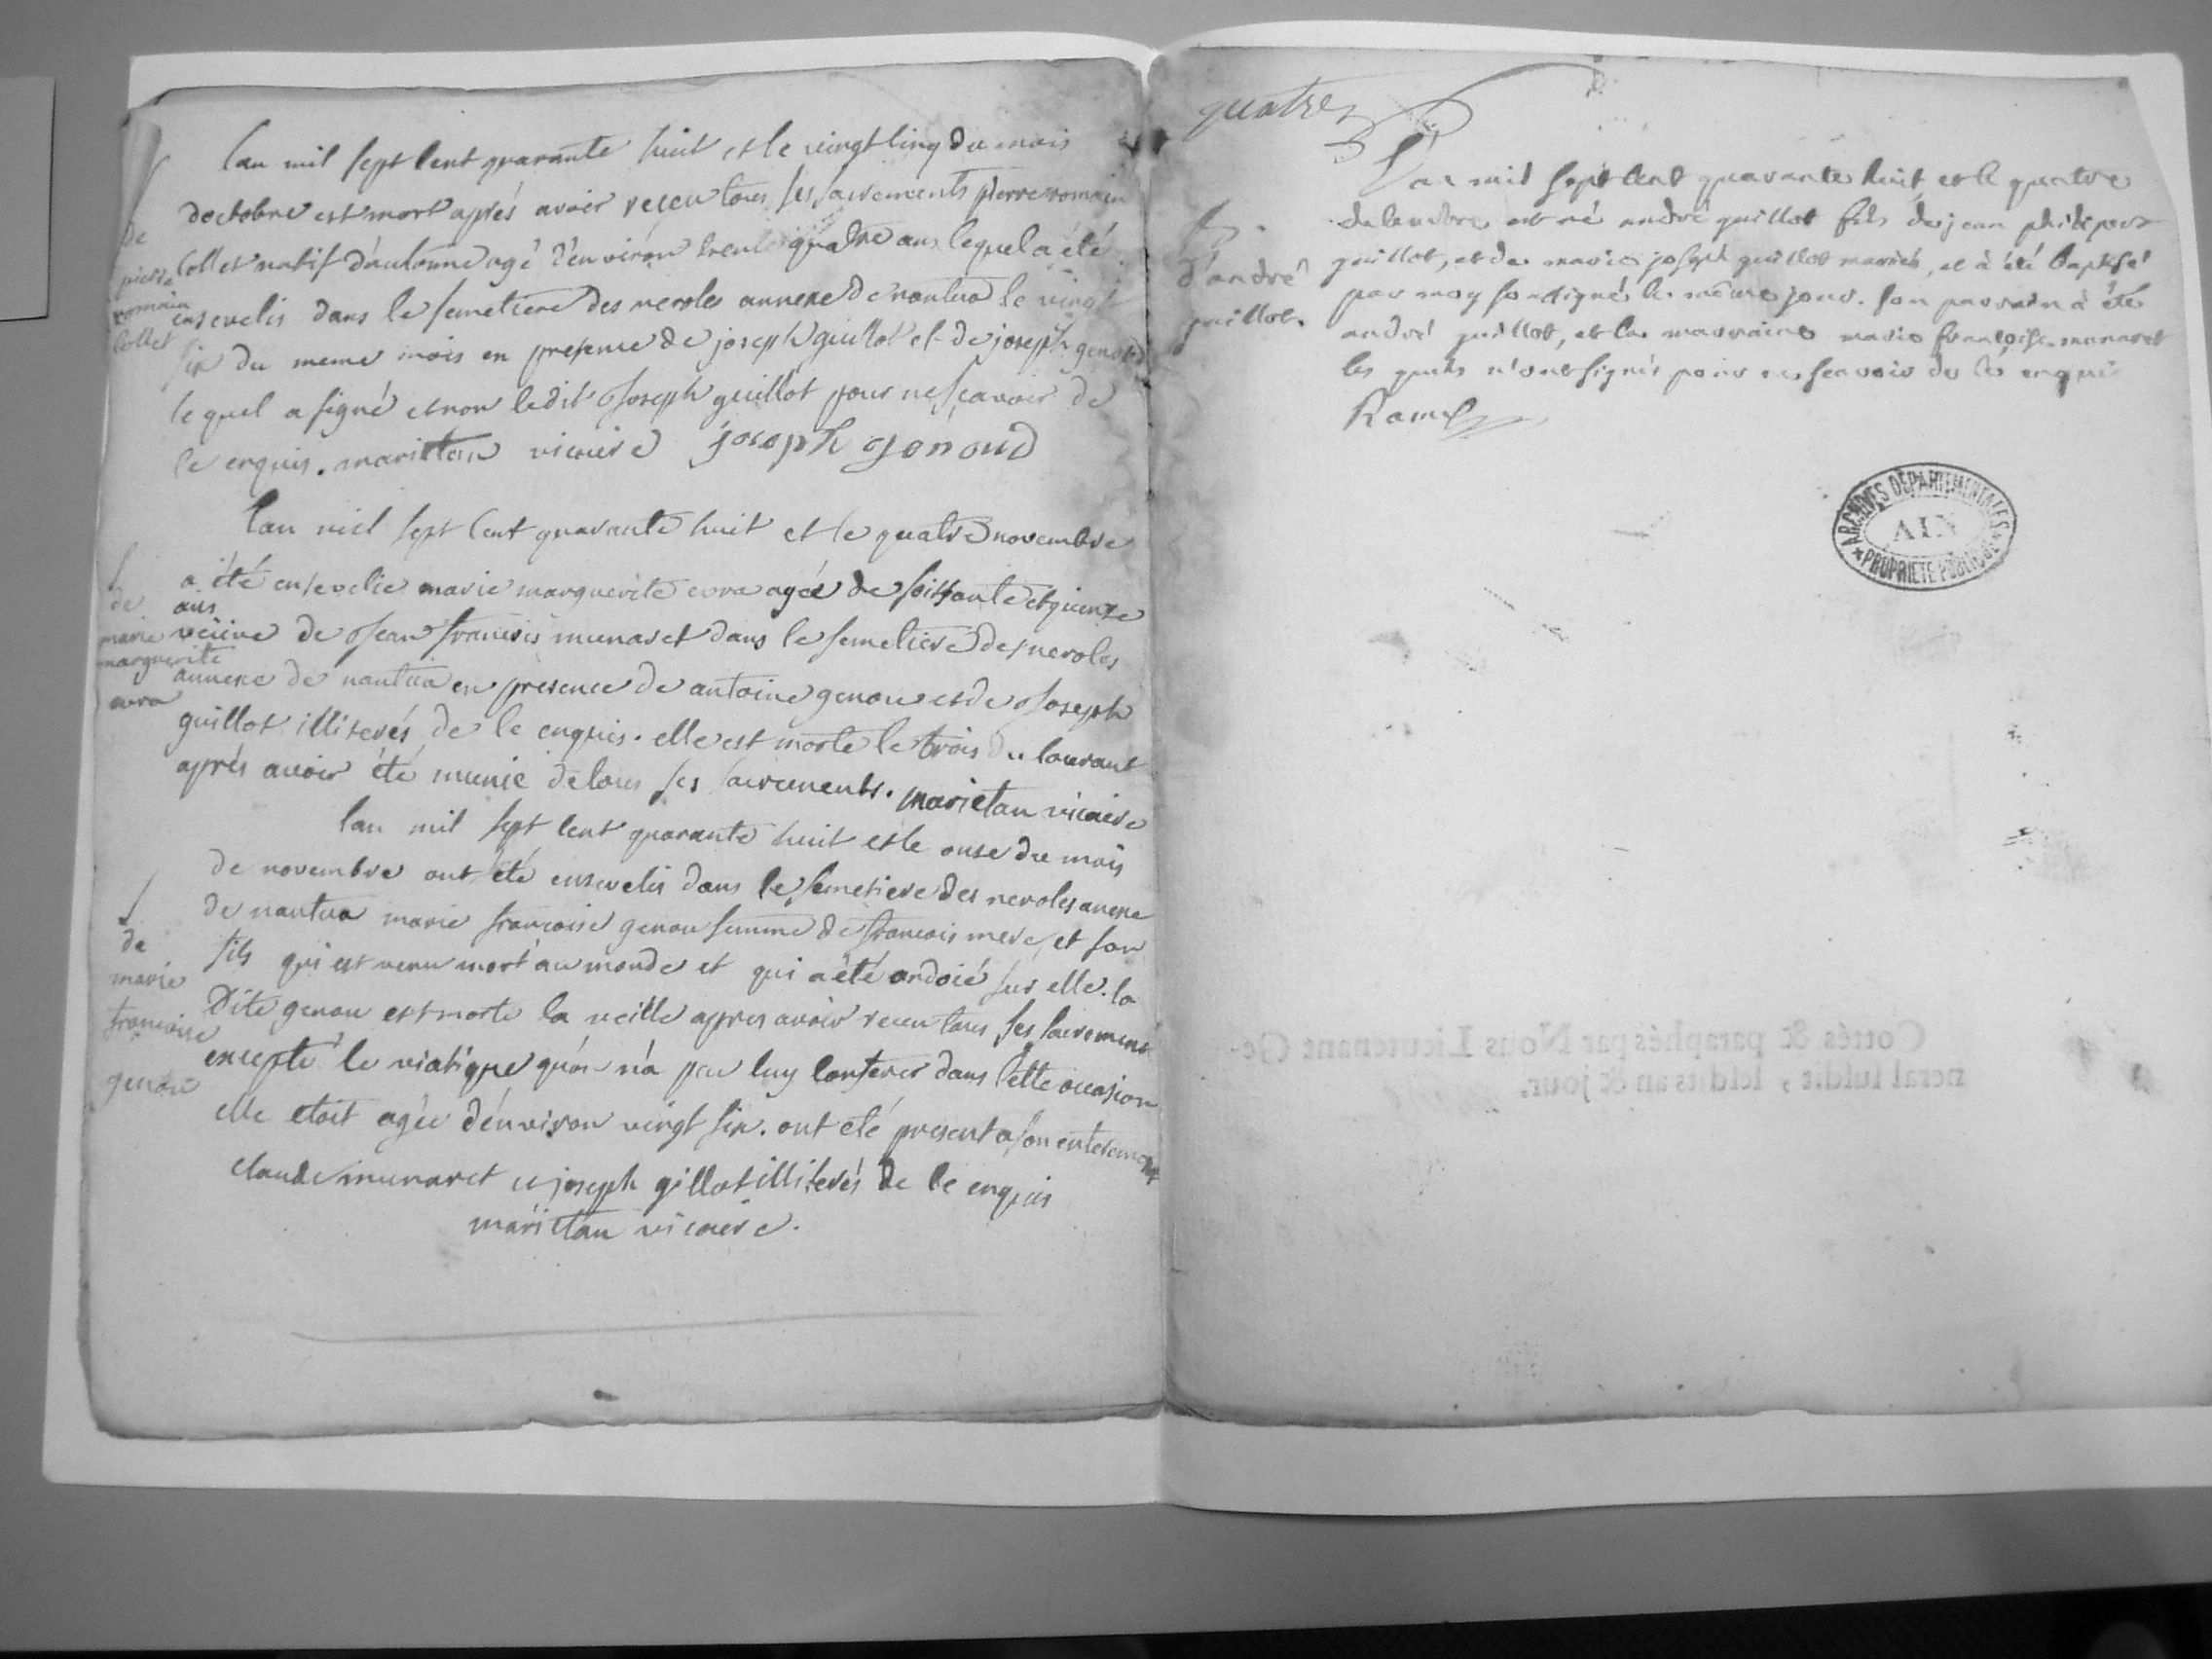 lan mil sept cent quarante huit et le vingt cinq du mois
doctobre est mort aprés avoir reçeu tous ses sacrements pierre romain
collet natif d'autonne agé d'environ trente quatre ans lequel a été
ensevelis dans le semetiere des neroles annexe de nantua le vingt
six du meme mois en presence de joseph guillot et de joseph genoud
le quel a signé et non ledit joseph guillot pour ne sçavoir de
ce enquis. mariettan vicaire joseph genoud
de
pierre
romain
collet
lan mil sept cent quarante huit et le quatre novembre
a été ensevelie marie marguerite evra agée de soissante et quinze
ans
veüve de jean francois munaret dans le semetiere des neroles
annexe de nantua en presence de antoine genou et de joseph
guillot illiterés de ce enquis. elle est morte le trois du courant
aprés avoir été munie de tous ses sacrements. marietan vicaire
de
marie
marguerite
evra
lan mil sept cent quarante huit et le onse du mois
de novembre ont été ensevelis dans le semetiere des neroles anexe
de nantua marie francoise genou femme de francois mere, et son
fils qui est venu mort au monde et qui a été ondoié sur elle. la
dite genou est morte la veille apres avoir receu tous ses sacrements
excepté le viatique qu'on n'a peu luy conferer dans cette occasion
elle etoit agée d'environ vingt six. ont eté present a son enterement
claude munaret et joseph gillot illiterés de ce enquis
mariettan vicaire.
de
marie
francoise
genou
quatre
L'an mil sept cent quarante huit et le quatre
decembre est né andré guillot fils de jean philipes
guillot, et de marie joseph guillot mariés, et à été baptisé
par moy soussigné le même jour. son parrain à été
andré guillot, et la marraine marie francoise munaret
les quels n'ont signé pour ne scavoir de ce enquis
Ramel
d'andré
guillot.
ARCHIVES DEPARTEMENTALES
AIN
* PROPRIETE PUBLIQUE *
Cottés & paraphés par Nous Lieutenant Ge-
neral susdit, lesdits an & jour.